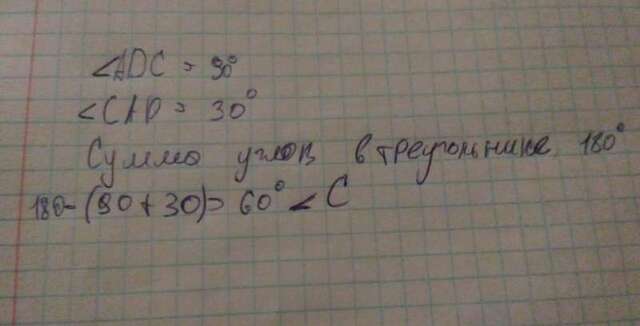 ∠ADC = 90°
∠CAD = 30°
Сумма углов в треугольнике 180°
180-(90+30)= 60° ∠C